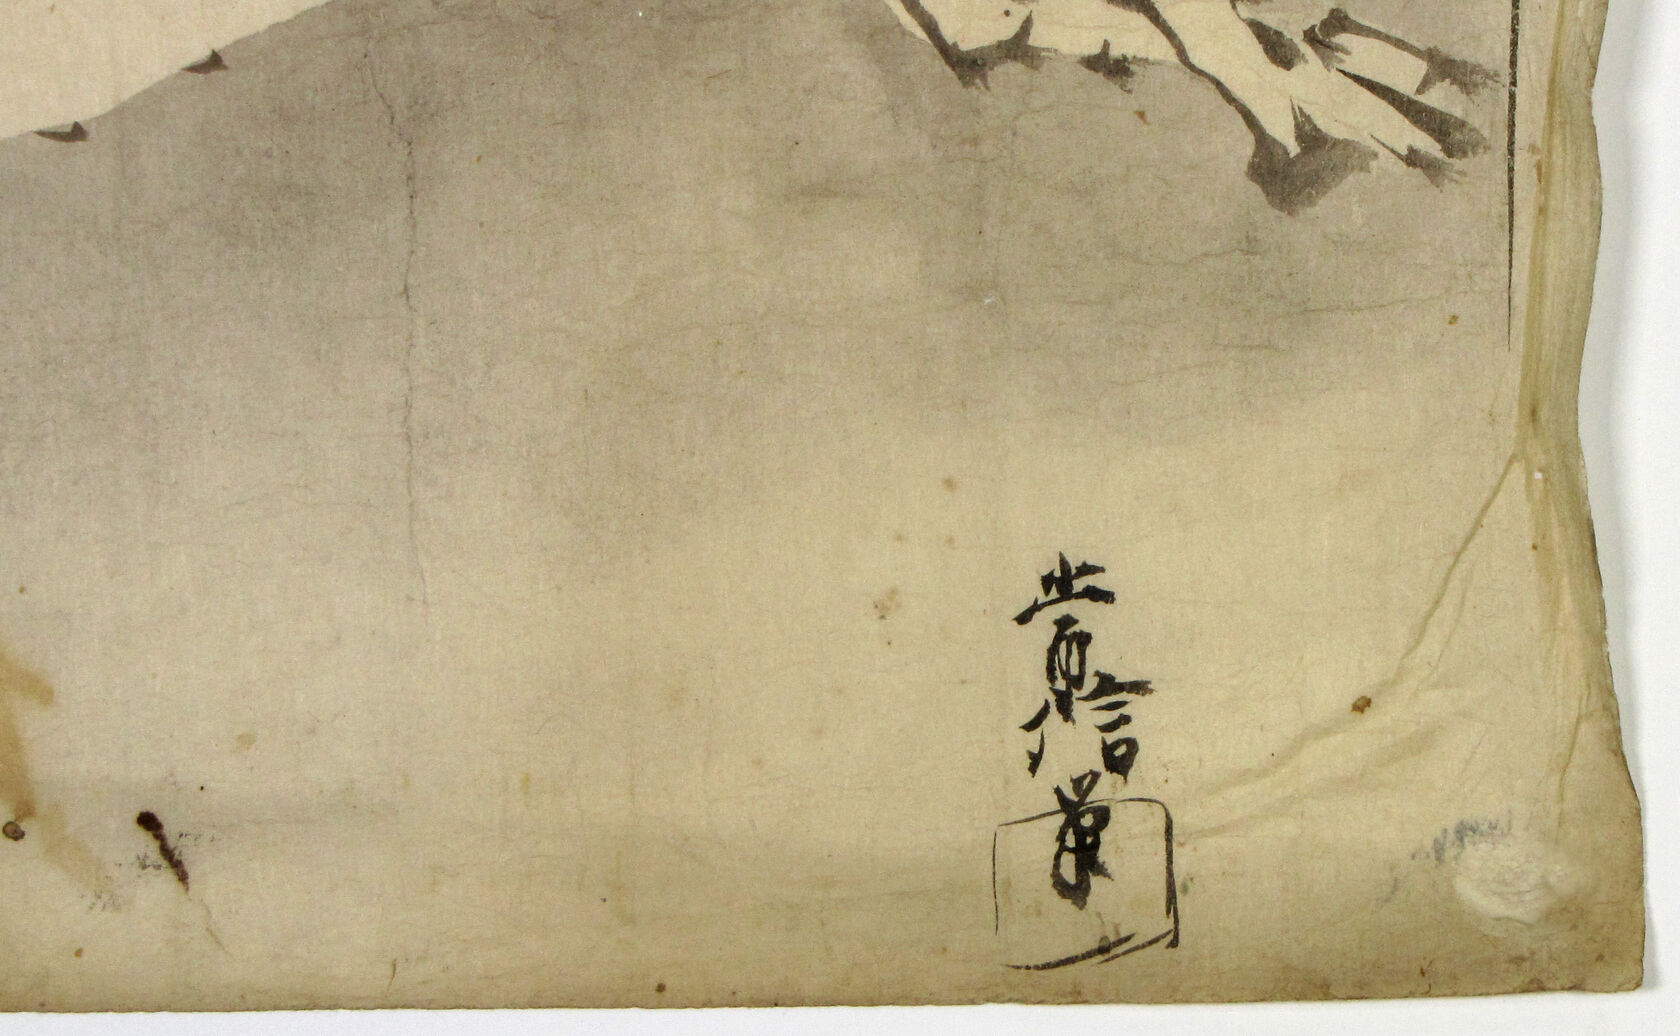 常信筆